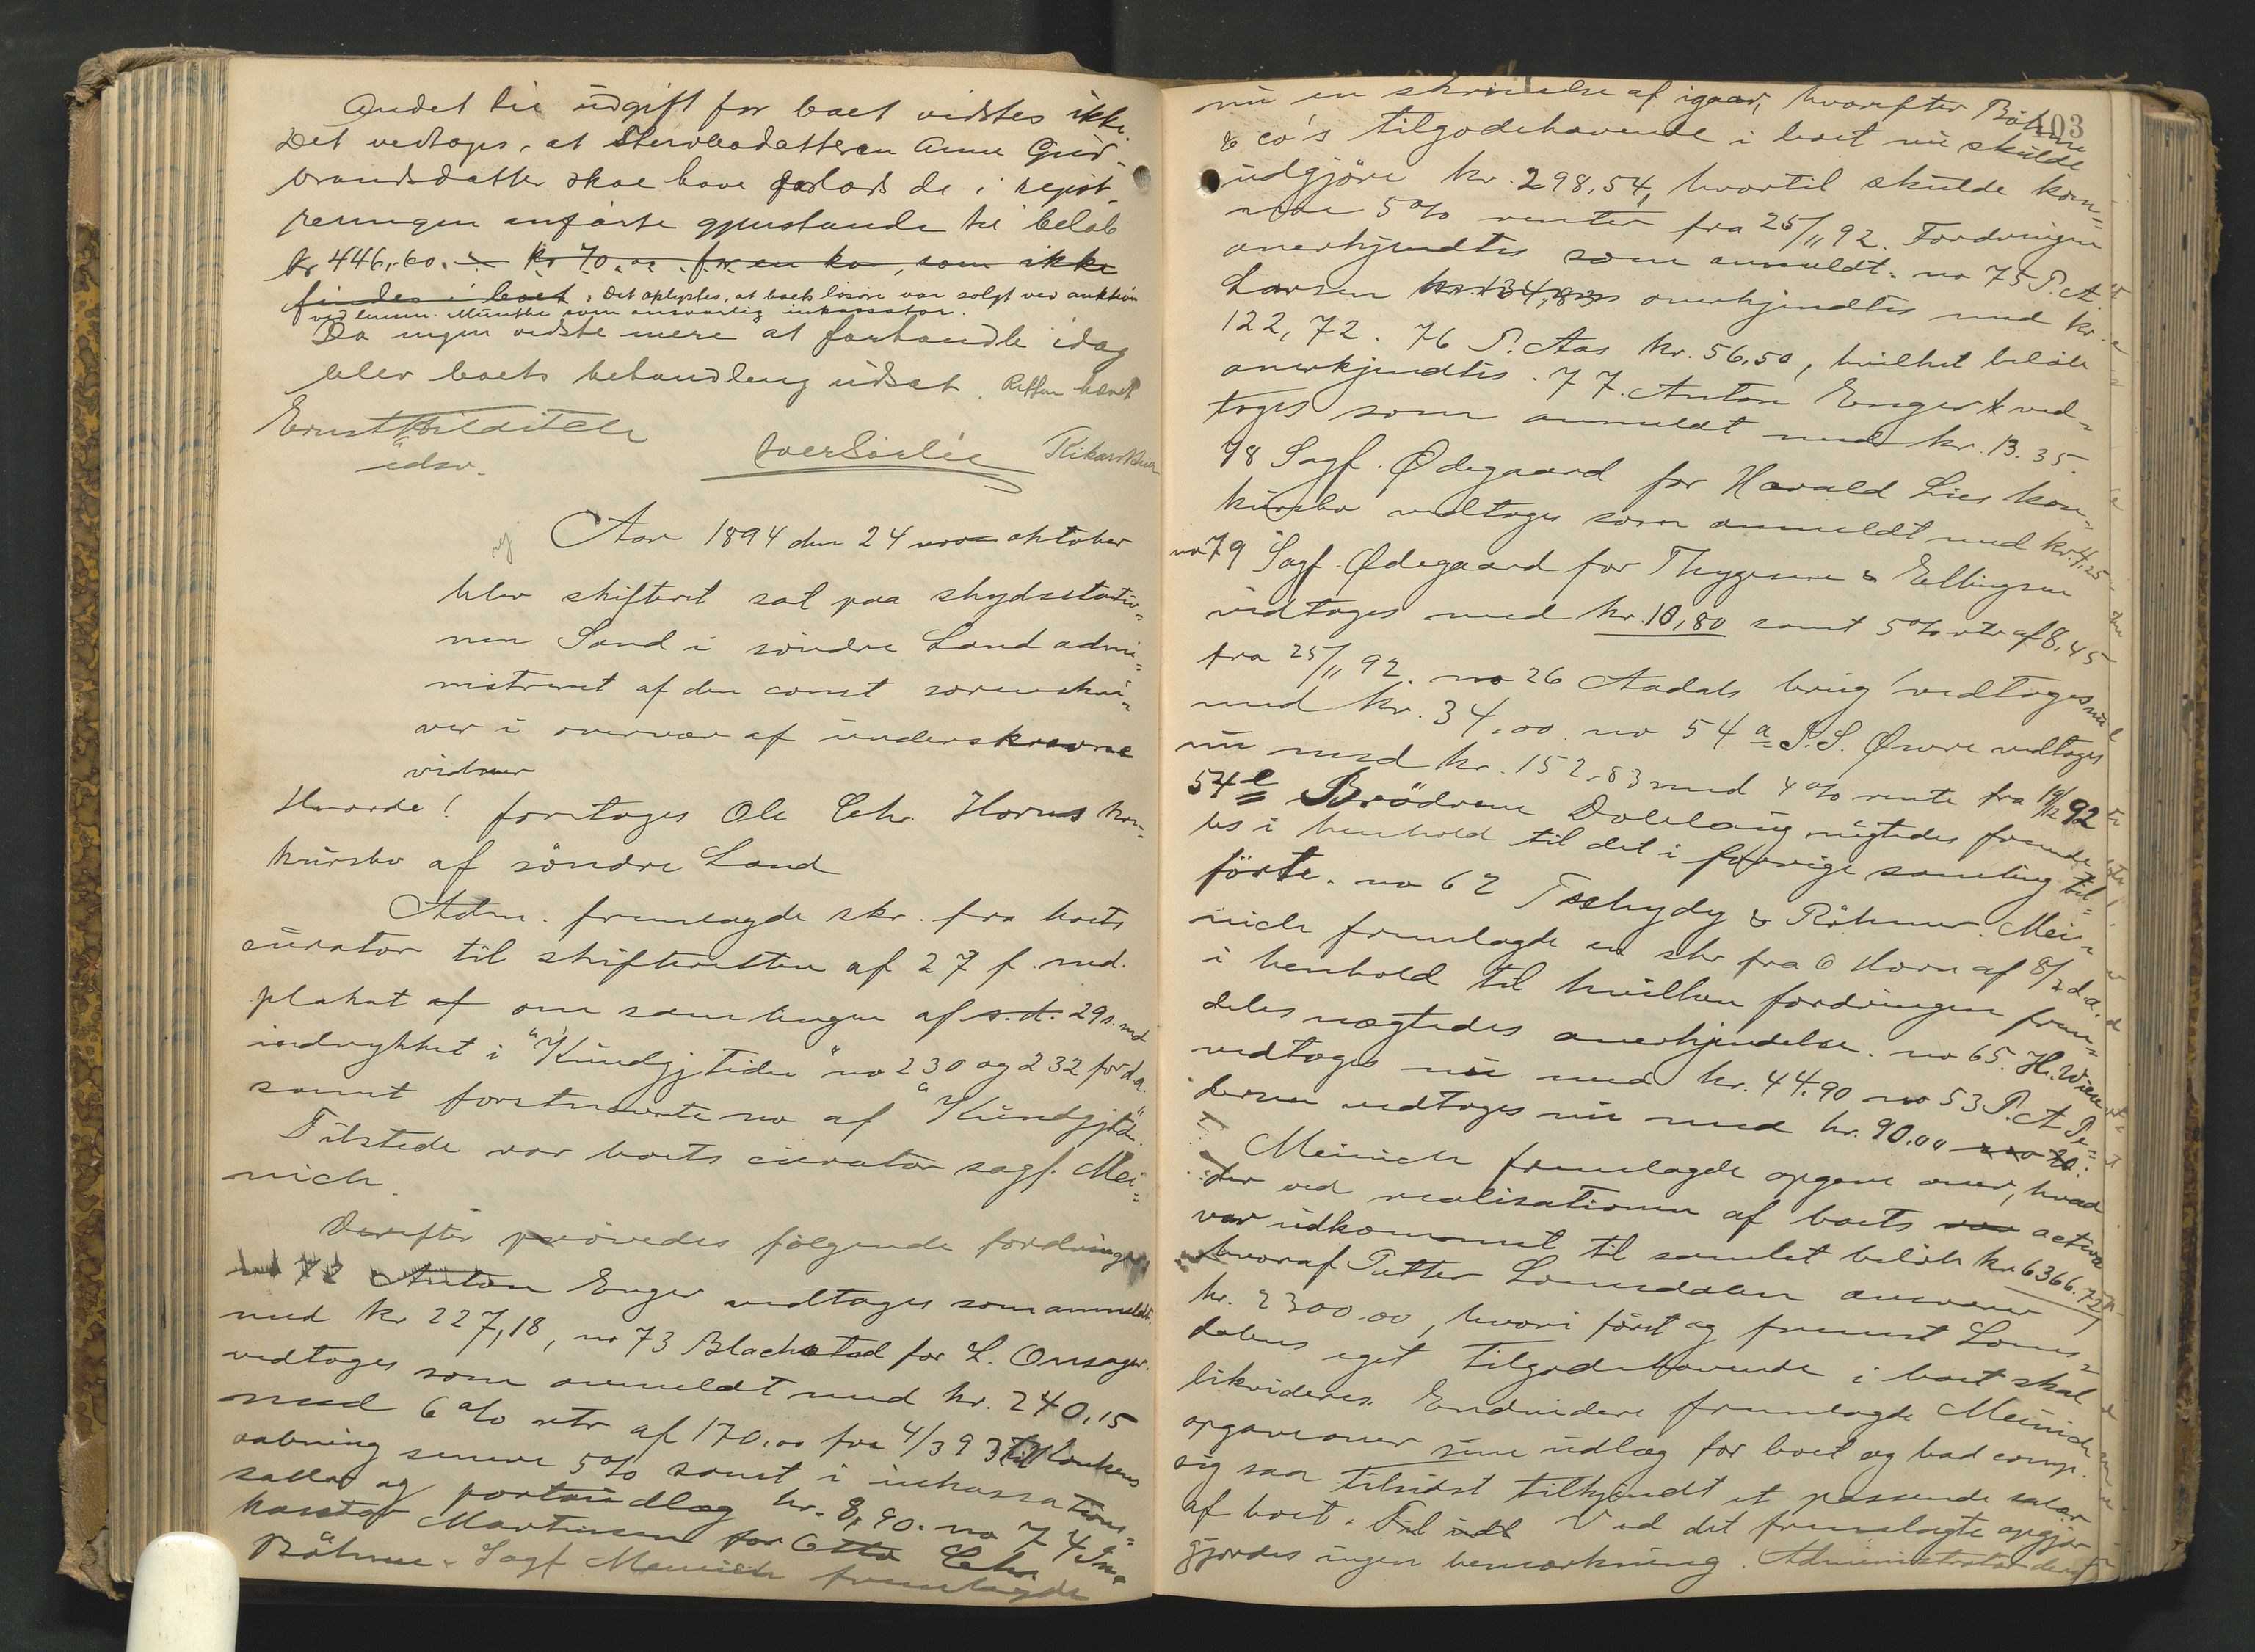 Andet til udgift for boet vidstes ikke.
Det vedtoges, at Stervbodatteren Anne Gud-
brandsdatter skal have forlods de i regist-
reringen anførte gjenstande til beløb
kr 446,60. ÷ kr 70.00 for en ko, som ikke
findes i boet, Det oplystes, at boets løsøre var solgt ved auktion
ved lensm. Munthe som ansvarlig inkassator.
Da ingen vidste mere at forhandle idag
blev boets behandling udsat. Retten hævet
Ernst Hilditch
edsv.
Aar 1894 den 24 nov oktober
blev skifteret sat paa skydsstatio-
nen Sand i søndre Land admi-
nistreret af den const sorenskri-
ver i overvær af underskrevne
vidner
Hvorda! foretoges Ole Chr. Horns kon-
kursbo af søndre Land
Adm. fremlagde skr. fra boets
curator til skifteretten af 27 f. md.
plakat af om samlingen af s.d. 29 s. md
indrykket i "Kundgj tiden" no 230 og 232 for d.a.
samt forstnævnte no af "Kundgjtid."
Tilstede var boets curator sagf. Mei-
nich.
Derefter prövedes følgende fordringer,
72 Anton Enger vedtoges som anmeldt
med kr 227,18, no 73 Blachstad for L. Onsager.
vedtoges som anmeldt med kr. 240,15
med 6 % rtr af 170,00 fra 4/3 93 til Konkurs
aabning senere 5% samt i inkassations-
sallar og portoudlæg kr. 8,90. no 74 In-
kassator Martinsen for Otto Chr.
Böhme. Sagf Meinich fremlagde
403
nu en skrivelse af igaar, hvorefter Böhme
& co's tilgodehavende i boet nu skulde
udgjöre kr. 298,54, hvortil skulde kom-
me 5% renter fra 25/11 92. Fordringen
anerkjendtes som anmeldt. no 75 P. A.
Larsen kr. 134,83 anerkjendtes med kr.
122,72. 76 P. Aas kr. 56,50, hvilket beløb
anerkjendtes. 77. Anton Enger ved-
toges som anmeldt med kr. 13.35.
78 Sagf. Ødegaard for Harald Lies kon-
kursbo vedtoges som anmeldt med kr. 4,25
no 79 Sagf. Ødegaard for Thygesen & Ellingsen
vedtoges med kr. 10,80 samt 5% rtr af 8,45
fra 25/11 92. no 26 Aadals brug vedtoges nu
med kr. 34,00. no 54 a S. S. Øvre vedtoges
nu med kr. 152,83 med 4% rente fra 19/12 92
54 e Brödrene Doblaug nægtedes fremde-
les i henhold til det i forrige samling til-
förte. no 62 Tschydy & Röhmer. Mei-
nich fremlagde en skr fra O Horn af 8/2 d.a.
i henhold til hvilken fordringen frem-
deles nægtedes anerkjendelse. no 65. H. Wien
vedtoges nu med kr. 44.90 no 53 P. A Pe-
dersen vedtoges nu med kr. 90.00
Meinich fremlagde opgave over, hvad
der ved realisationen af boets activa
var udkommet til samlet beløb kr 6366.72,
hvoraf Petter Lomsdalen ansvarer
kr. 2300.00, hvori först og fremst Loms-
dalens eget tilgodehavende i boet skal
likvideres. Endvidere fremlagde Meinich
opgave over sine udlæg for boet og bad comp.
sig saa tilsidst tilkjendt et passende salær
af boet. Til udl Ved det fremlagte opgjør
gjordes ingen bemærkning. Administrator